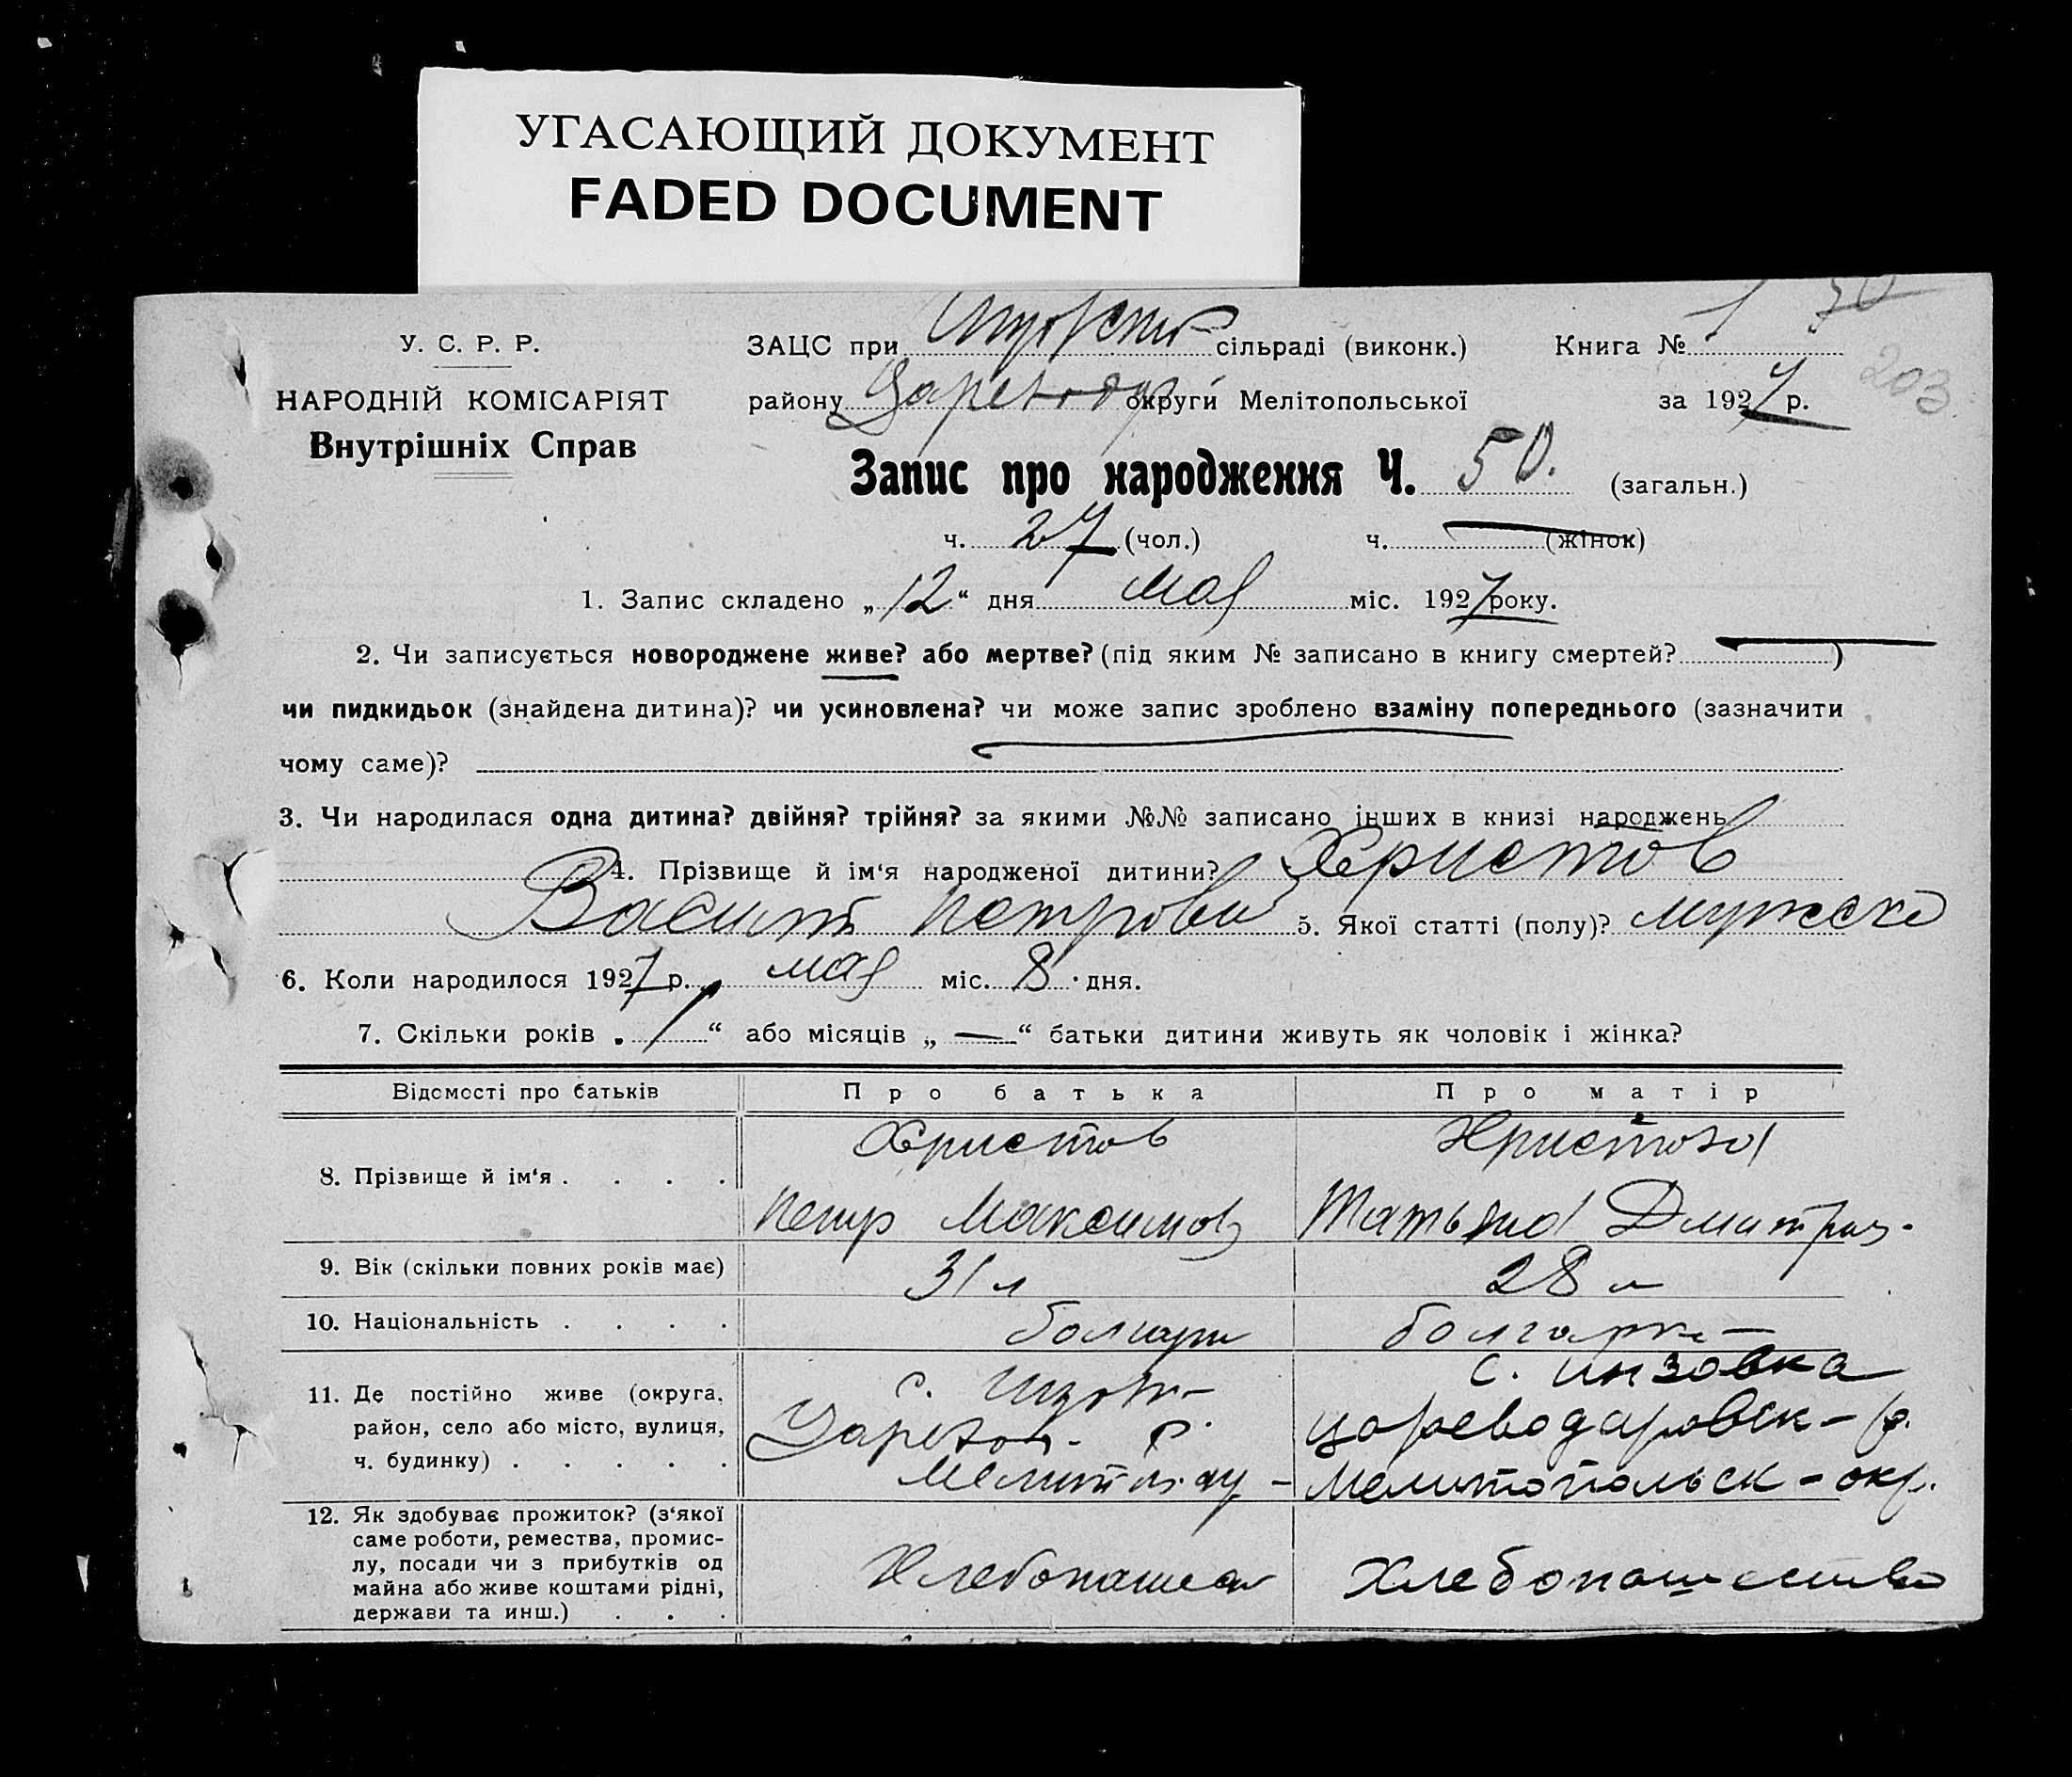 УГАСАЮЩИЙ ДОКУМЕНТ
FADED DOCUMENT
У. С. Р. Р.
НАРОДНІЙ КОМІСАРІЯТ
Внутрішніх Справ
ЗАЦС при сільраді (виконк.) Книга № 1 50
району округи Мелітопольської за 1927 р. 203
Запис про народження Ч. 50. (загальн.)
ч. 27 (чол.) ч. — (жінок)
1. Запис складено „12“ дня мая міс. 1927 року.
2. Чи записується новороджене живе? або мертве? (під яким № записано в книгу смертей? — )
чи пидкидьок (знайдена дитина)? чи усиновлена? чи може запис зроблено взаміну попереднього (зазначити
чому саме)?
3. Чи народилася одна дитина? двійня? трійня? за якими №№ записано інших в книзі народжень
4. Прізвище й ім‘я народженої дитини? Христов
Петрови 5. Якої статті (полу)? мужско
6. Коли народилося 1927 р. мая міс. 8 дня.
7. Скільки років „ 1 “ або місяців „ — “ батьки дитини живуть як чоловік і жінка?
Відомості про батьків Про батька Про матір
8. Прізвище й ім‘я . . . . Христов Христова
Петр Максимов Татьяна Дмитриев.
9. Вік (скільки повних років має) 31 л 28 л
10. Національність . . . . болгарин болгарка
11. Де постійно живе (округа, район, село або місто, вулиця, ч. будинку) . . . . . с. с. Инзовка
р. цареводаровск – р.
Мелитопольск – окр.
12. Як здобуває прожиток? (з‘якої саме роботи, ремества, промислу, посади чи з прибутків од майна або живе коштами рідні, держави та инш.) . . . Хлебопашест Хлебопашество